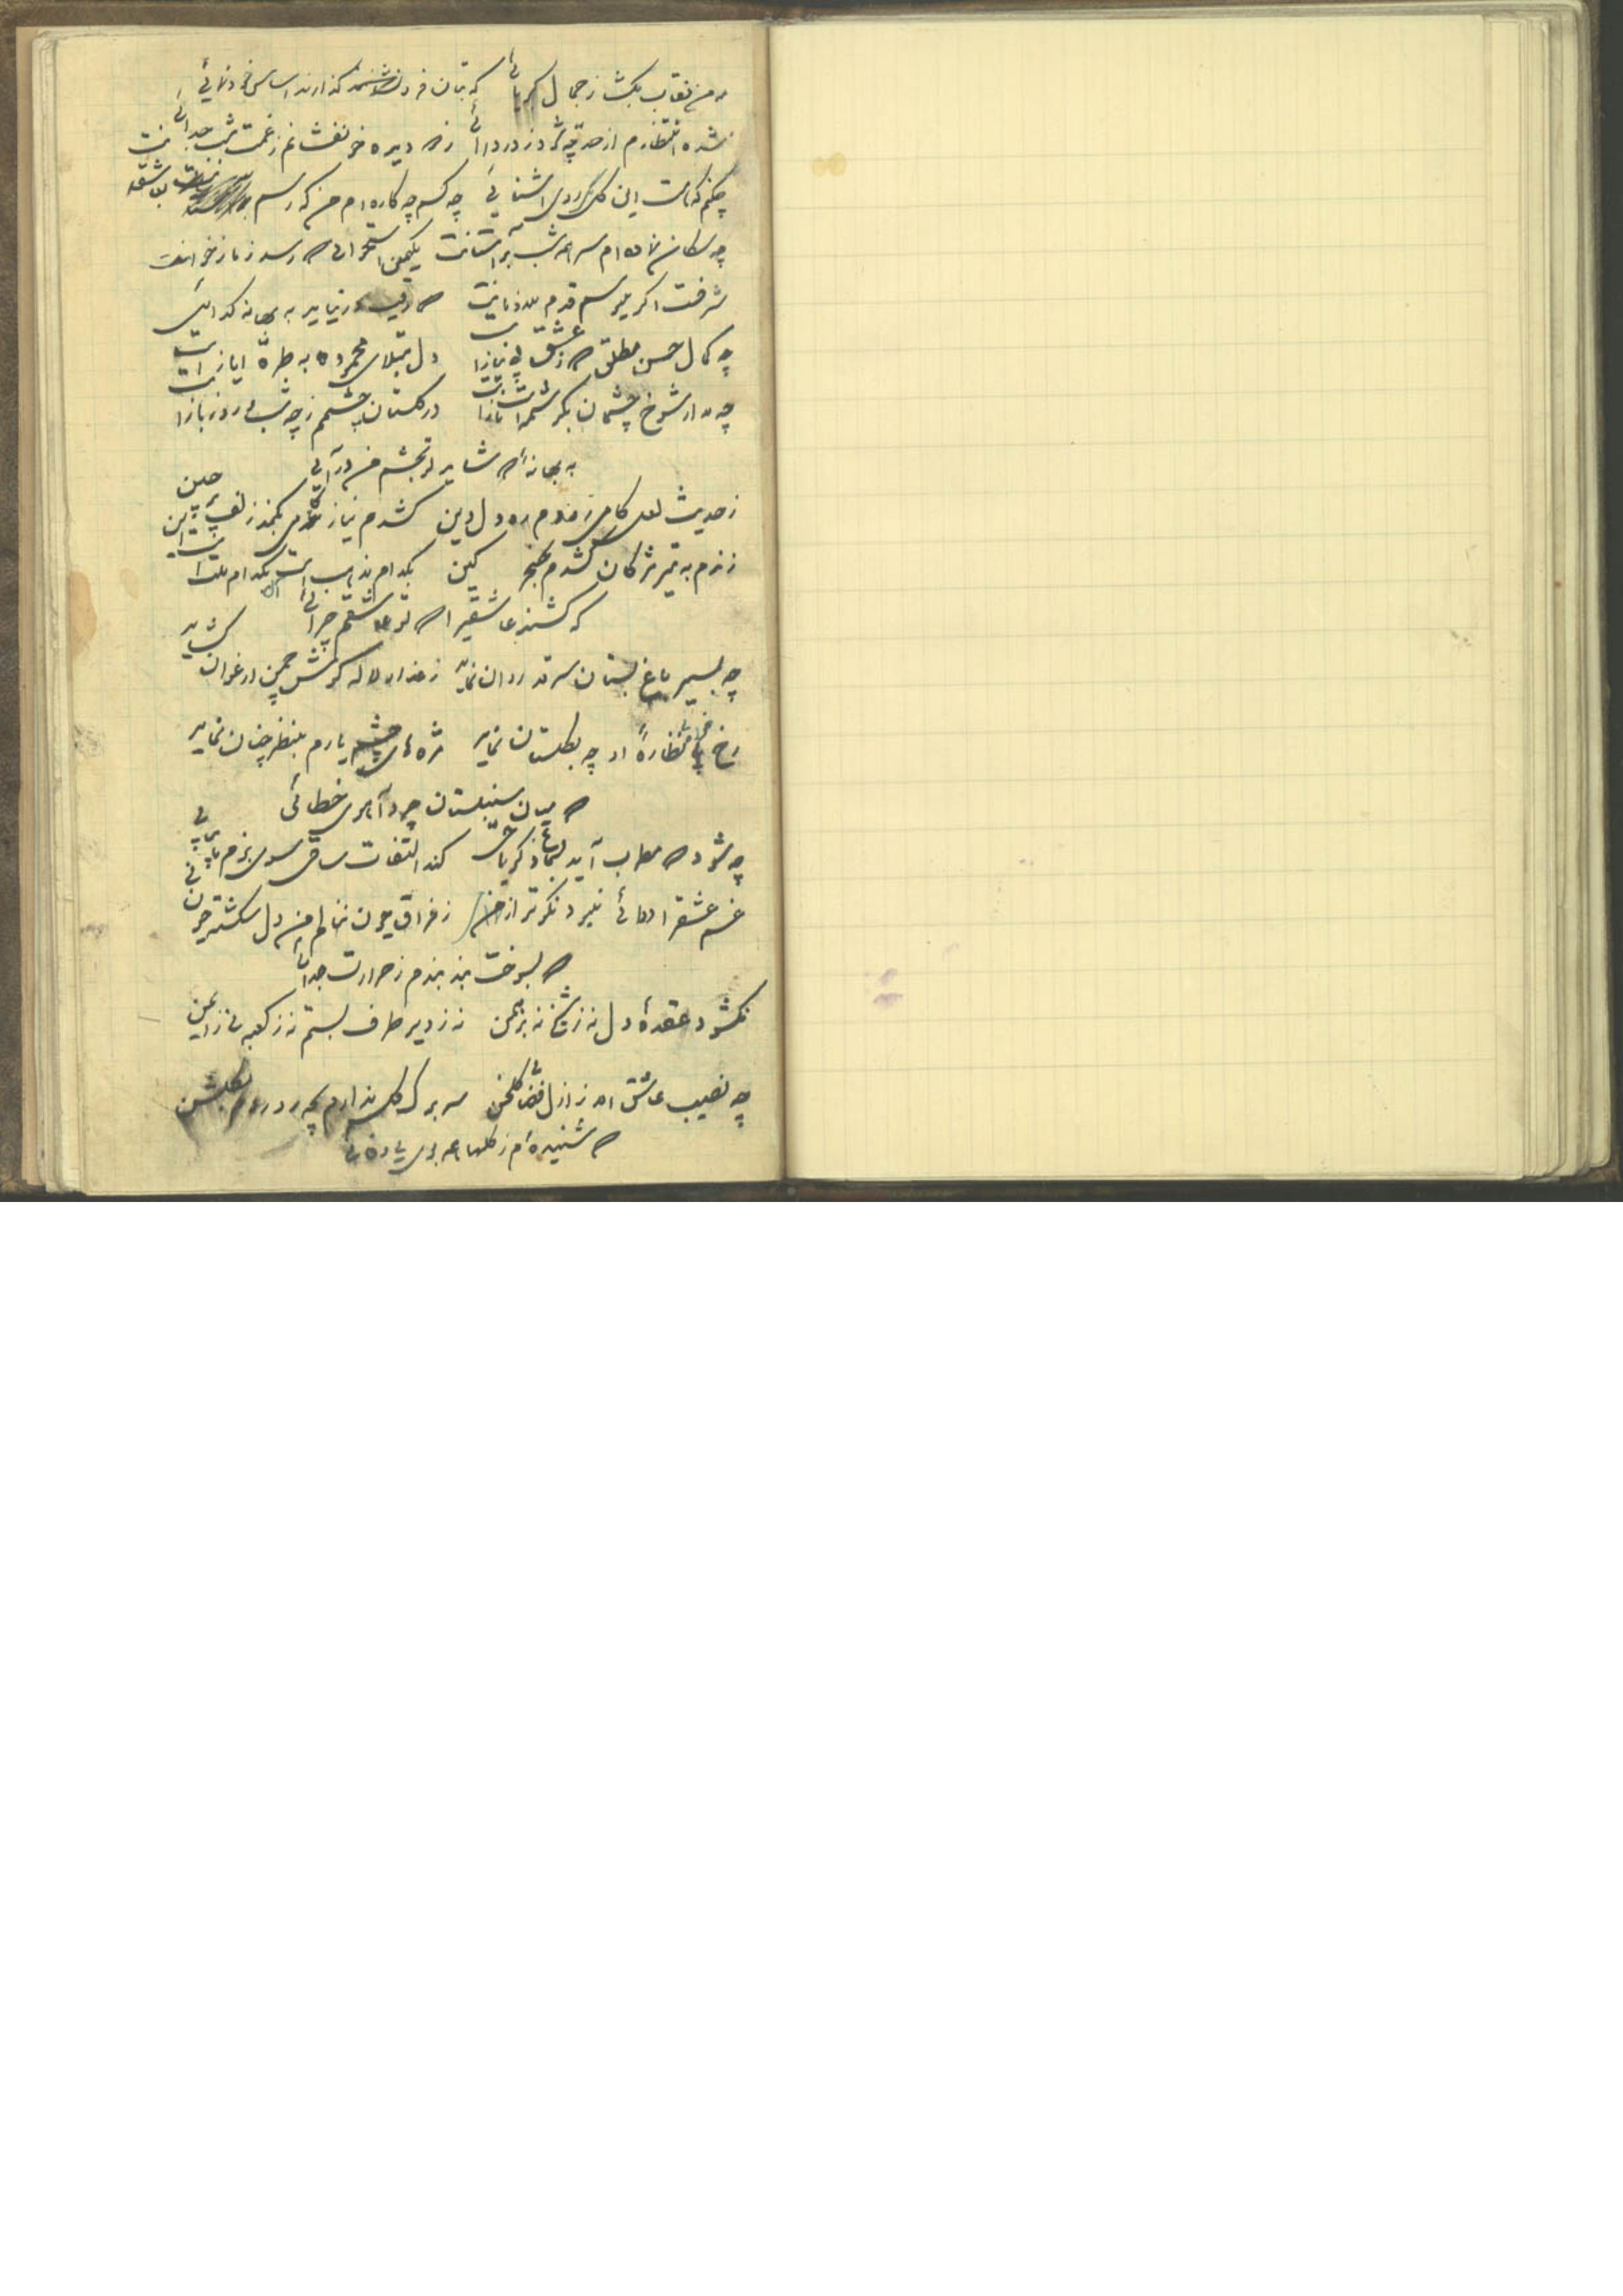 من نقاب بکشا ز جمال کبریائی که بتان فرو گذارند اساس خودنمائی
شده انتظارم از حد چه شود ز در درائی ز دیده خونفشانم ز غمت شب جدائی
چکنم که هست این گل روی اشنایی چه کسم چه کاره‌ام من که رسم بعاشقانت
چه سگان نهاده‌ام سر همه شب بر آستانت استخوانی رسد ز بازخوانت
شرفست اگر قدم که رقیب در نیاید به بهانه گدائی
چه کمال حسن مطلق که ز عشق بی نیاز است دل مبتلای محمود به طره ایاز است
شوخ چشمان بکرشمه است و ناز است در گلستان چشمم ز چه شب و روز باز است
به بهانه‌ای که شاید تو بچشم من درآیی
ز حدیث لعل کامی زندم ره دل و دین کشدم نیاز بکمند زلف پرچین
زندم به تیر مژگان کشدم بخنجر کین بکدام مذهب است این بکدام ملت است این
که کشند عاشقی را که تو عاشقم چرائی
چه بسیر باغ بستان سر قد روان نماید ز عذار لاله گونش چمن ارغوان گشاید
رخ نظاره او چه بگلستان نماید مژه‌های چشم یارم بنظر چنان نماید
که میان سنبلستان چرد آهوی خطائی
چه شود که مطرب آید بسماع ذکر یا حی کند التفات ساقی سوی بزم ما پیاپی
غم عشق را دوائی نبود نکوتر از می ز فراق چون ننالم من دل شکسته چون نی
که بسوخت بند بندم ز حرارت جدائی
نگشود عقدهٔ دل نه ز شیخ نه برهمن نه ز دیر طرف بستم نه ز کعبه نی ز ایمن
چه نصیب عاشق آمد ز ازل فضای گلخن سر برگ گل ندارم بچه رو روم بگلشن
که شنیده‌ام ز گلها همه بوی بی وفائی